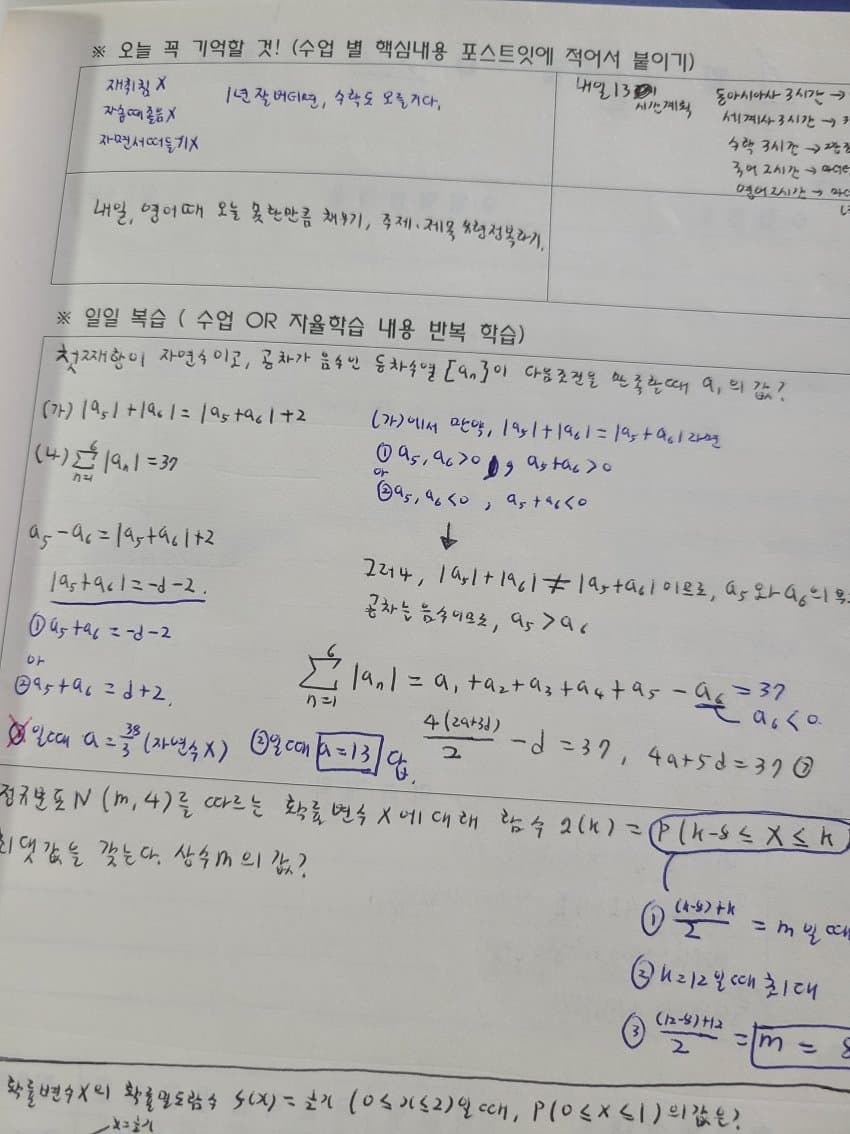 ※ 오늘 꼭 기억할 것! (수업 별 핵심내용 포스트잇에 적어서 붙이기)
재취침 X
자습때졸음X
자면서떠들기X
1년 잘 버티면, 수학도 오를거다.
내일 13
시간계획
동아시아사 3시간 →
세계사 3시간 →
수학 3시간 →
국어 2시간 →
영어 2시간 →
내일, 영어때 오늘 못한만큼 채우기, 주제·제목 유형정복하기.
※ 일일 복습 ( 수업 OR 자율학습 내용 반복 학습)
첫째항이 자연수이고, 공차가 음수인 등차수열 [aₙ]이 다음조건을 만족할때 a₁의 값?
(가) |a₅| + |a₆| = |a₅+a₆| + 2
(나) ⁶Σₙ₌₁ |aₙ| = 37
a₅ - a₆ = |a₅+a₆| + 2
|a₅+a₆| = -d-2.
① a₅+a₆ = -d-2
or
② a₅+a₆ = d+2.
① 일때 a = 38/3 (자연수 X) ② 일때 a=13 답.
(가)에서 만약, |a₅|+|a₆| = |a₅+a₆| 라면
① a₅, a₆ > 0 , a₅+a₆ > 0
or
② a₅, a₆ < 0 , a₅+a₆ < 0
↓
그러나, |a₅|+|a₆| ≠ |a₅+a₆| 이므로, a₅와 a₆의
공차는 음수이므로, a₅ > a₆
⁶Σₙ₌₁ |aₙ| = a₁ + a₂ + a₃ + a₄ + a₅ - a₆ = 37
a₆ < 0.
4(2a+3d)/2 - d = 37, 4a+5d = 37
정규분포 N (m, 4)를 따르는 확률변수 X에 대해 함수 g(k) = P(k-8 ≤ X ≤ k)
최댓값을 갖는다. 상수 m의 값?
① (k-8)+k/2 = m 일때
② k=12 일때 최대
③ (12-8)+12/2 = m = 8
확률변수X의 확률밀도함수 f(x) = ½x (0≤x≤2)일때, P(0≤X≤1)의 값은?